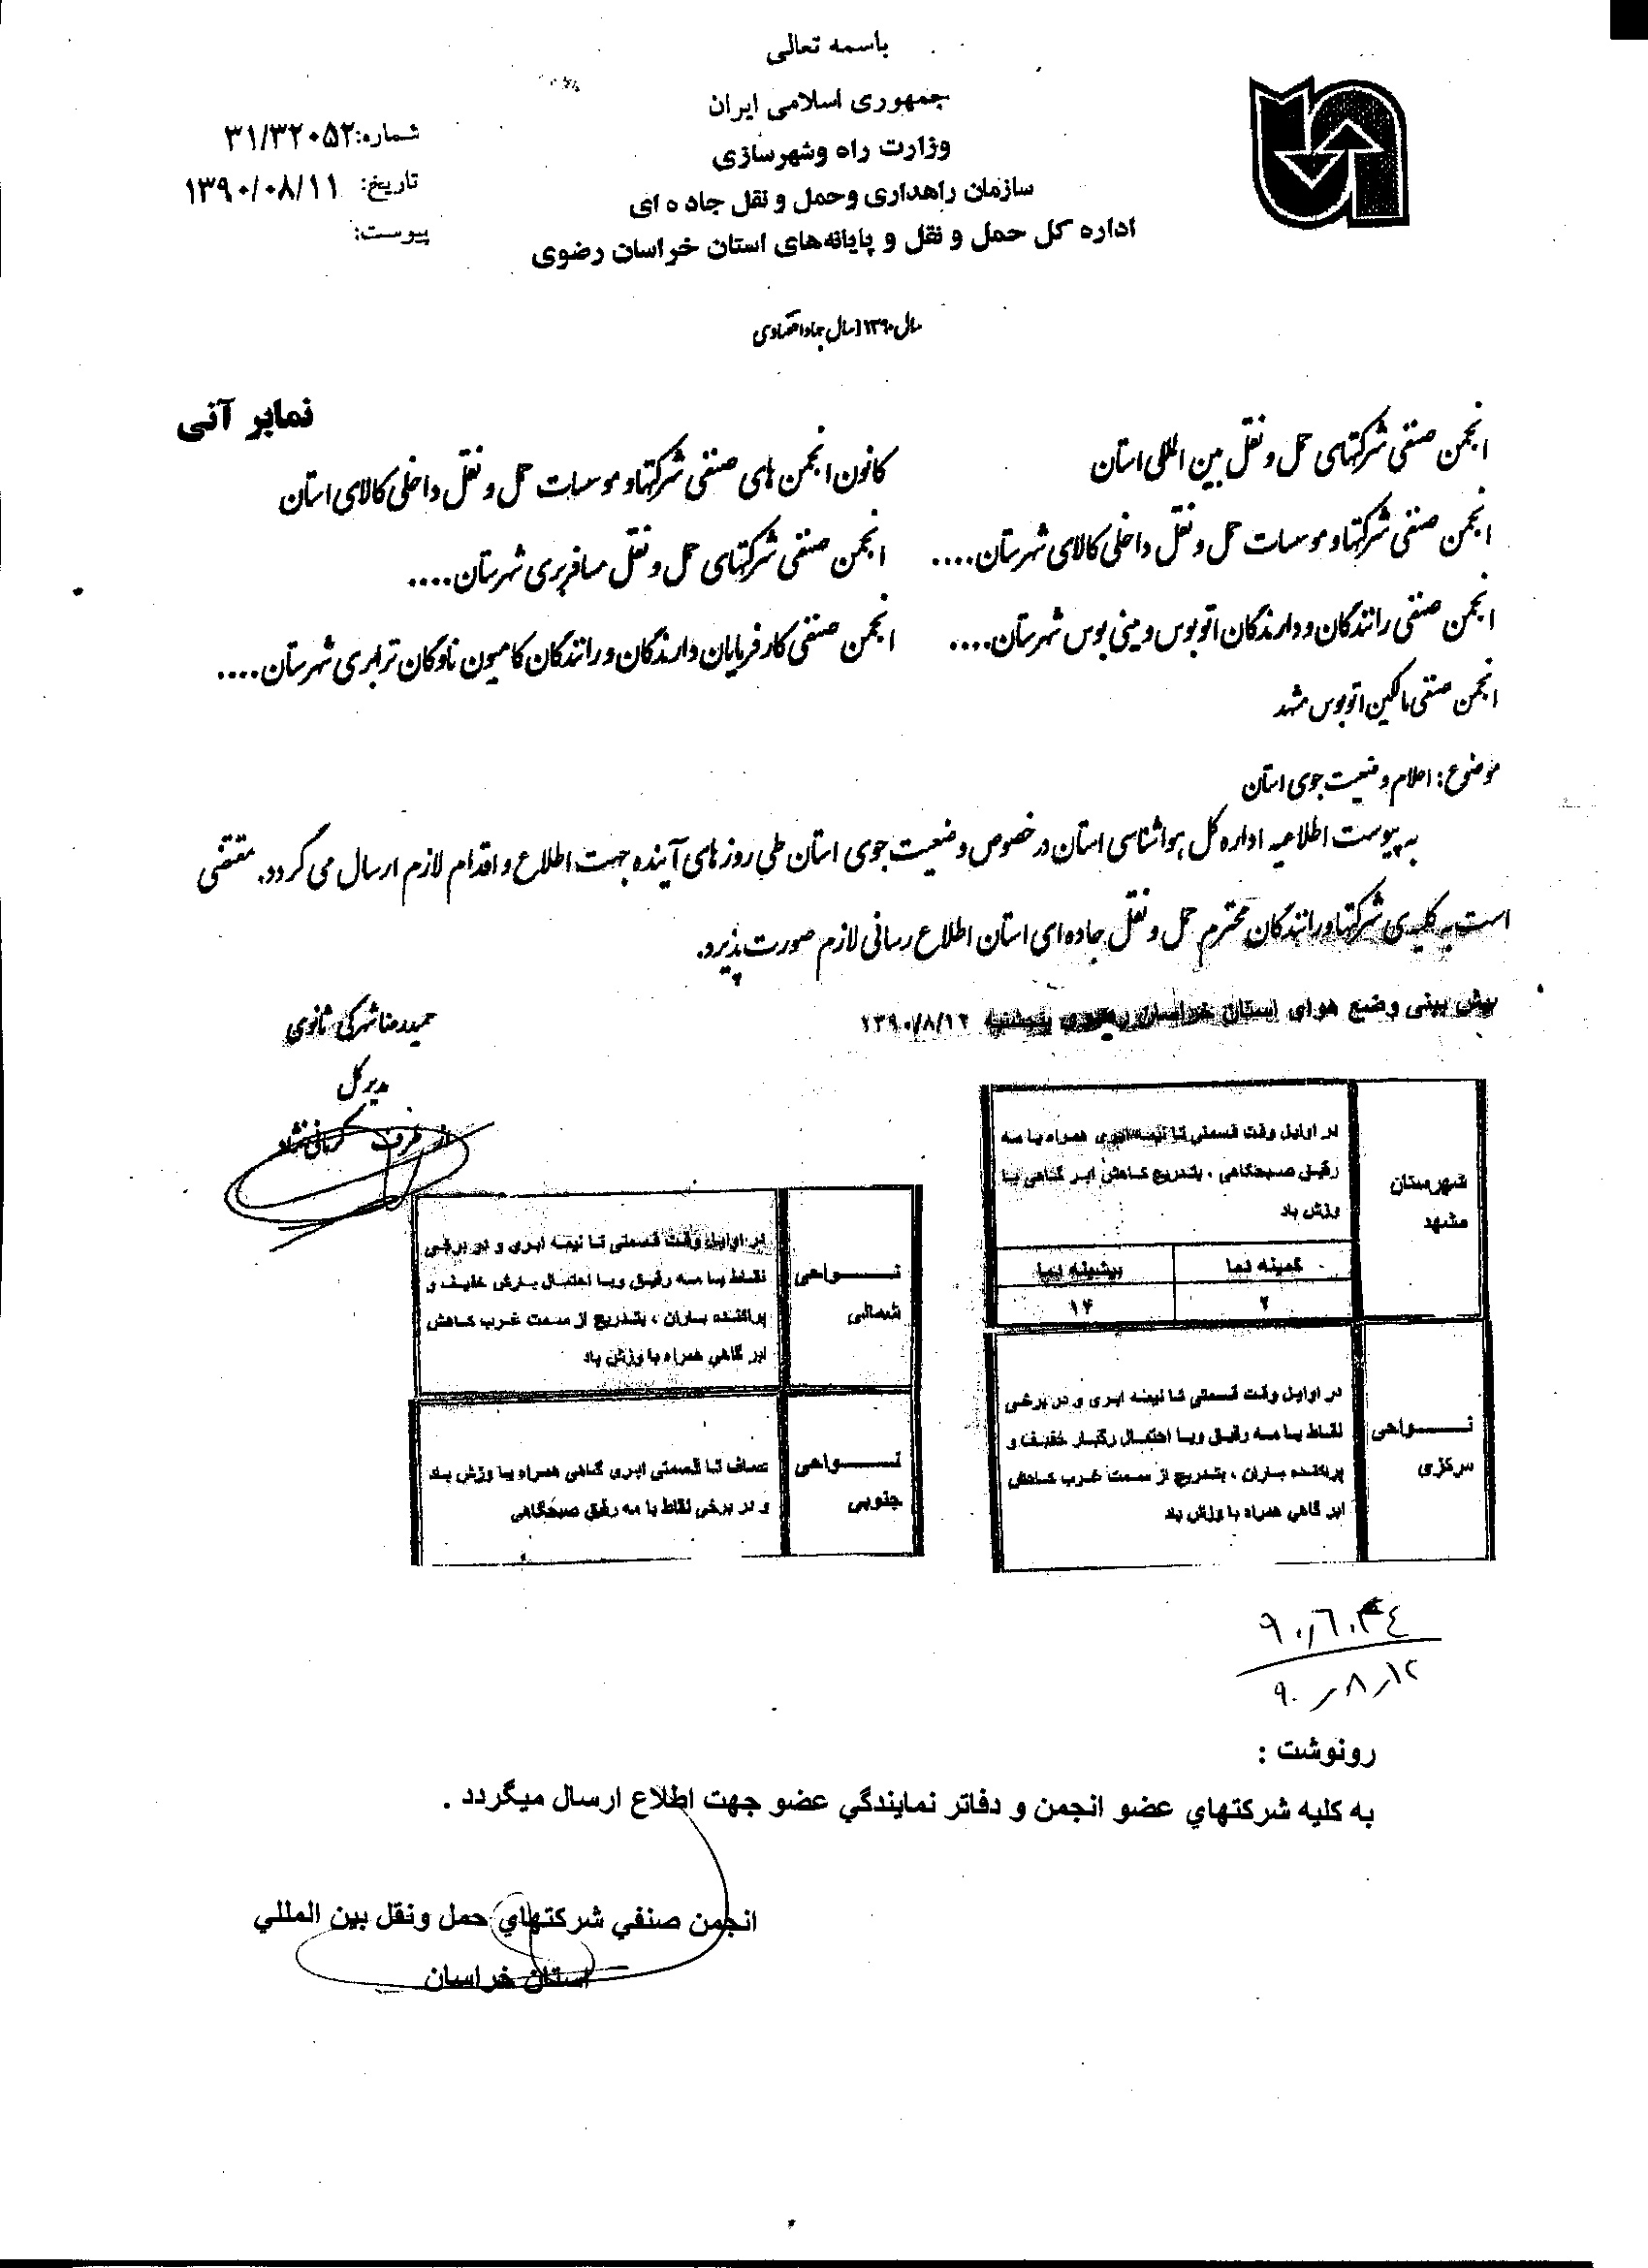 باسمه تعالی
جمهوری اسلامی ایران
وزارت راه وشهرسازی
سازمان راهداری وحمل و نقل جاده ای
اداره کل حمل و نقل و پایانه‌های استان خراسان رضوی
شماره: ۳۱/۳۲۰۵۲
تاریخ: ۱۳۹۰/۰۸/۱۱
پیوست:
سال ۱۳۹۰ سال جهاد اقتصادی
نمابر آنی
انجمن صنفی شرکتهای حمل و نقل بین المللی استان
کانون انجمن های صنفی شرکتها و موسسات حمل و نقل داخلی کالای استان
انجمن صنفی شرکتها و موسسات حمل و نقل داخلی کالای شهرستان....
انجمن صنفی شرکتهای حمل و نقل مسافربری شهرستان....
انجمن صنفی رانندگان و دارندگان اتوبوس و مینی بوس شهرستان....
انجمن صنفی کارفرمایان دارندگان و رانندگان کامیون ناوگان ترابری شهرستان....
انجمن صنفی مالکین اتوبوس مشهد
موضوع: اعلام وضعیت جوی استان
به پیوست اطلاعیه اداره کل هواشناسی استان در خصوص وضعیت جوی استان طی روزهای آینده جهت اطلاع و اقدام لازم ارسال می گردد. مقتضی
است به کلیه ی شرکتها و رانندگان محترم حمل و نقل جاده ای استان اطلاع رسانی لازم صورت پذیرد.
پیش بینی وضع هوای استان خراسان رضوی ۱۳۹۰/۸/۱۲
حمیدرضا شرکی ثانوی
مدیر کل
از طرف
شهرستان مشهد
در اوایل وقت قسمتی تا نیمه ابری همراه با مه
رقیق صبحگاهی ، بتدریج کاهش ابر گاهی با
وزش باد
کمینه دما
بیشینه دما
۲
۱۴
نـــــواحی مرکزی
در اوایل وقت قسمتی تا نیمه ابری و در برخی
نقاط با مه رقیق ویا احتمال رگبار خفیف و
پراکنده باران ، بتدریج از سمت غرب کاهش
ابر گاهی همراه با وزش باد
نـــــواحی شمالی
در اوایل وقت قسمتی تا نیمه ابری و در برخی
نقاط با مه رقیق ویا احتمال بارش خفیف و
پراکنده باران ، بتدریج از سمت غرب کاهش
ابر گاهی همراه با وزش باد
نـــــواحی جنوبی
صاف تا قسمتی ابری گاهی همراه با وزش باد
و در برخی نقاط با مه رقیق صبحگاهی
۹۰٫۸٫۱۲
رونوشت :
به کلیه شرکتهاي عضو انجمن و دفاتر نمایندگي عضو جهت اطلاع ارسال میگردد .
انجمن صنفي شرکتهاي حمل ونقل بین المللي
استان خراسان